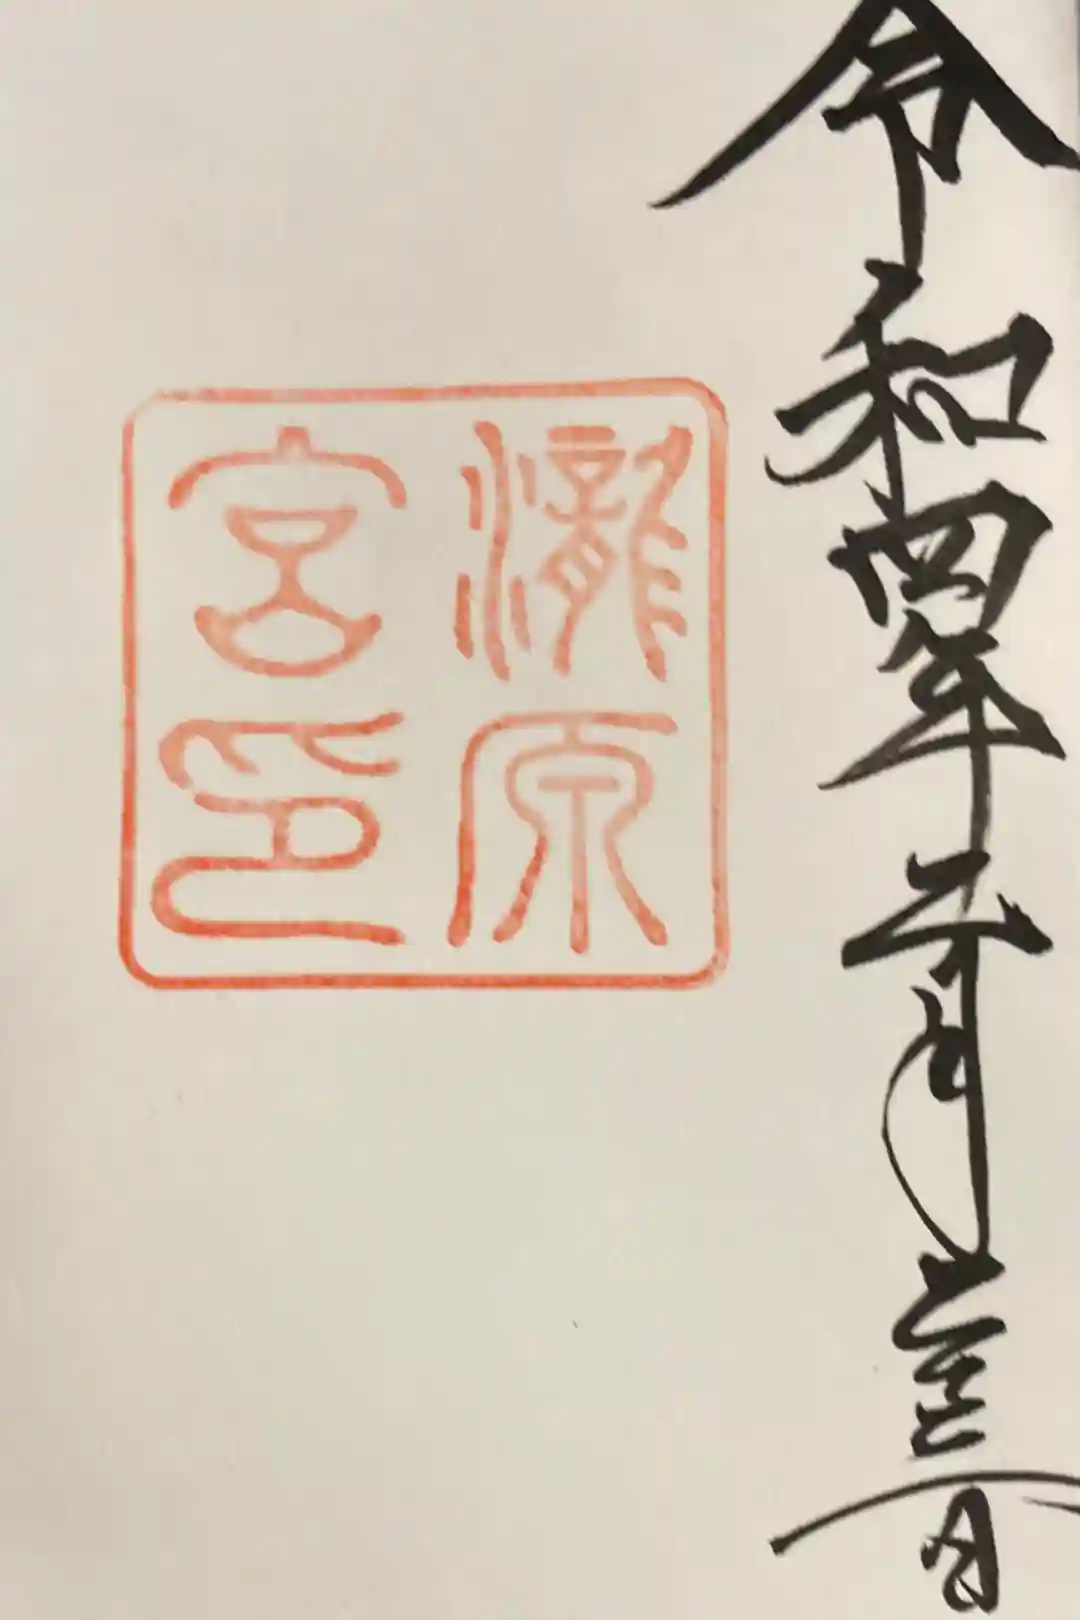 令和四年二月二十三日
瀧原
宮印